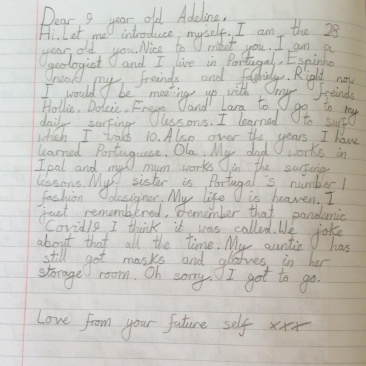 Dear 9 year old Adeline,
Hi. Let me introduce myself. I am the 28
year old you. Nice to meet you. I am a
geologist and I live in Portugal, Espinho
near my freinds and family. Right now
I would be meeting up with my freinds
Hollie, Dolcie, Freya and Lara to go to my
daily surfing lessons. I learned to surf
when I was 10. Also over the years I have
learned Portuguese. Ola. My dad works in
Ipal and my mum works in the surfing
lessons. My sister is Portugal's number 1
fashion designer. My life is heaven. I
just remembered, remember that pandemic
Covid19 I think it was called. We joke
about that all the time. My auntie has
still got masks and gloves in her
storage room. Oh sorry I got to go.
Love from your future self xxx